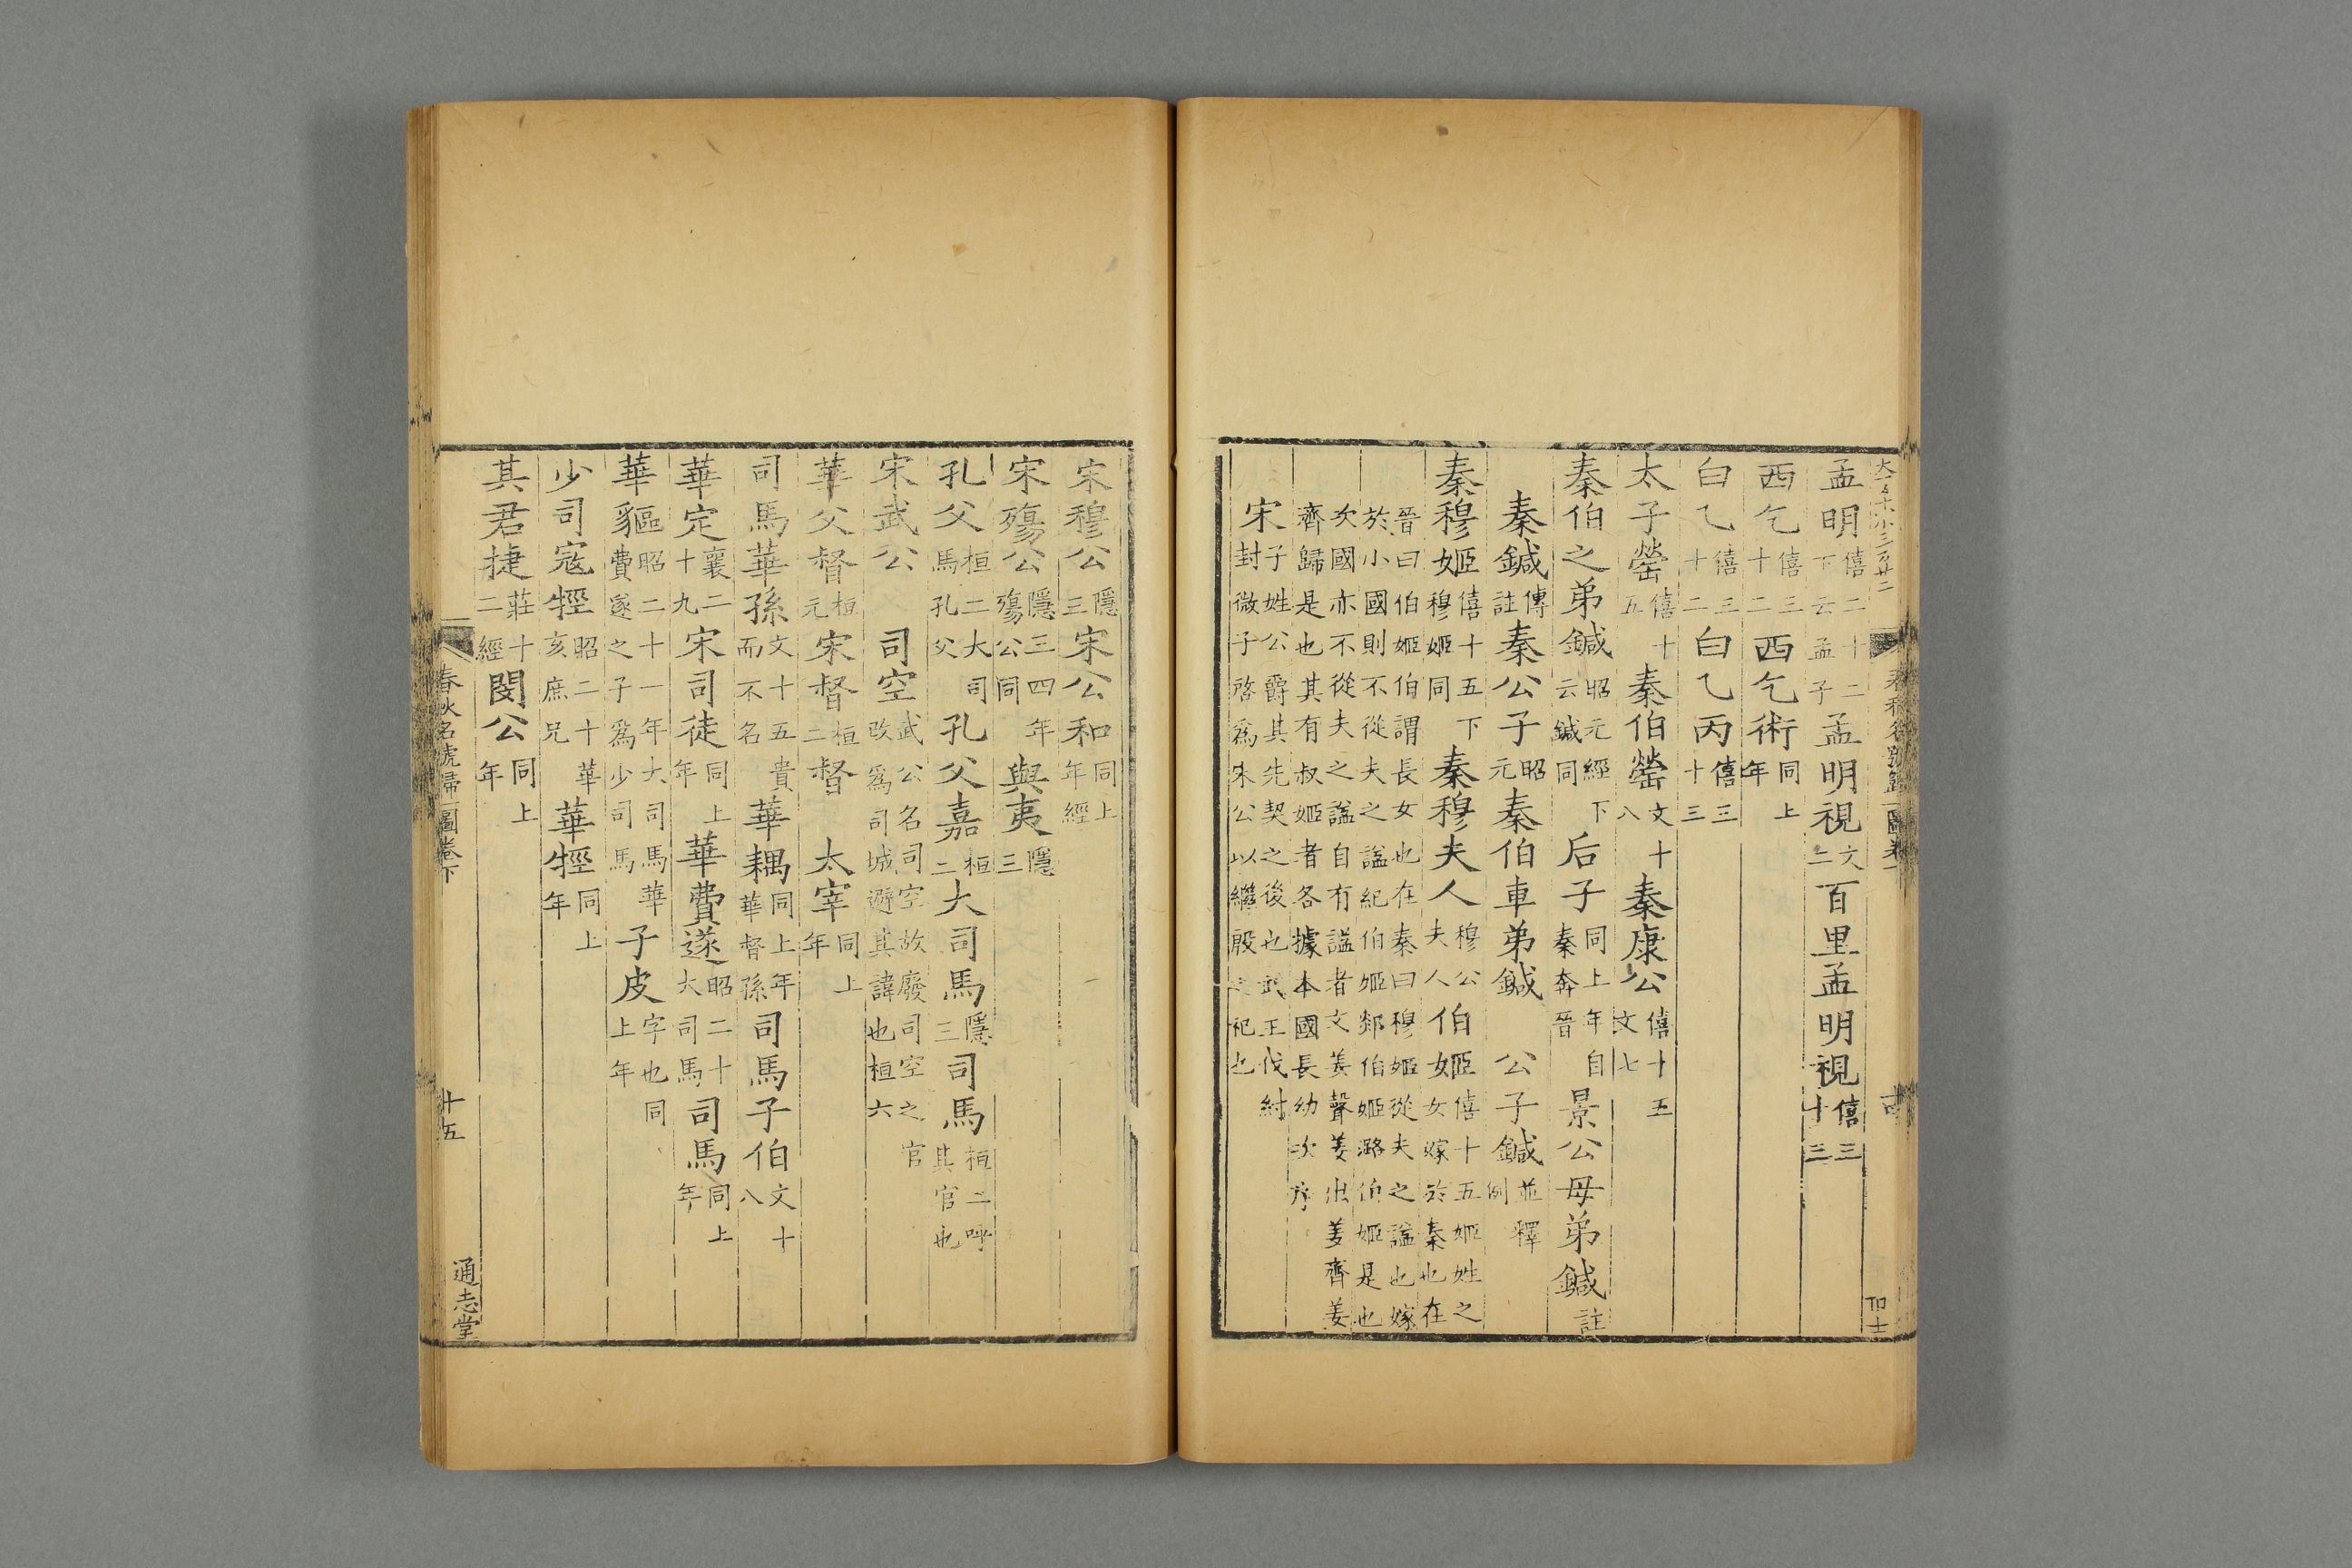 孟明僖二十二下云孟子孟明視文二百里孟明視僖三十三
西乞僖三十二西乞術同上年
白乙僖三十二白乙丙僖三十三
太子罃僖十五秦伯罃文十八秦康公僖十五文七
秦伯之弟鍼昭元經下云鍼同后子同上年自秦奔晉景公母弟鍼註
秦鍼傳註秦公子昭元秦伯車弟鍼公子鍼並釋例
秦穆姬僖十五下穆姬同秦穆夫人穆公夫人伯姬僖十五姬姓之女嫁於秦也在
晉曰伯姬伯謂長女也在秦曰穆姬從夫之諡也嫁於小國則不從夫之諡紀伯姬郯伯姬潞伯姬是也
次國亦不從夫之諡自有諡者文姜聲姜出姜齊姜齊歸是也其有叔姬者各據本國長幼次序
宋子姓公爵其先契之後也武王伐紂封微子啓爲宋公以繼殷之祀也
宋穆公隱三宋公和同上年經
宋殤公隱三四年殤公同與夷隱三
孔父桓二大司馬孔父孔父嘉桓二大司馬隱三司馬桓二呼其官也
宋武公司空武公名司空故廢司空之官改爲司城避其諱也桓六
華父督桓元宋督桓二督太宰同上年
司馬華孫文十五貴而不名華耦同上年華督孫司馬子伯文十八
華定襄二十九宋司徒同上年華費遂昭二十大司馬司馬同上年
華貙昭二十一年大司馬華費遂之子爲少司馬子皮字也同上年
少司寇牼昭二十華亥庶兄華牼同上年
其君捷莊十二經閔公同上年
春秋名號歸一圖卷下
十五
通志堂